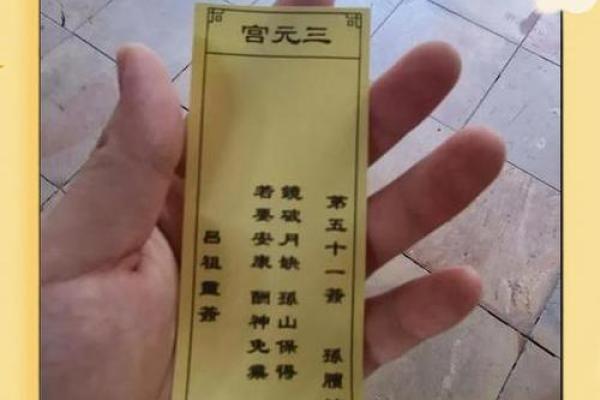 三元宮
第五十一簽 孫臏
鏡破月缺 孫山保得
若要安康 酬神免
呂祖靈簽